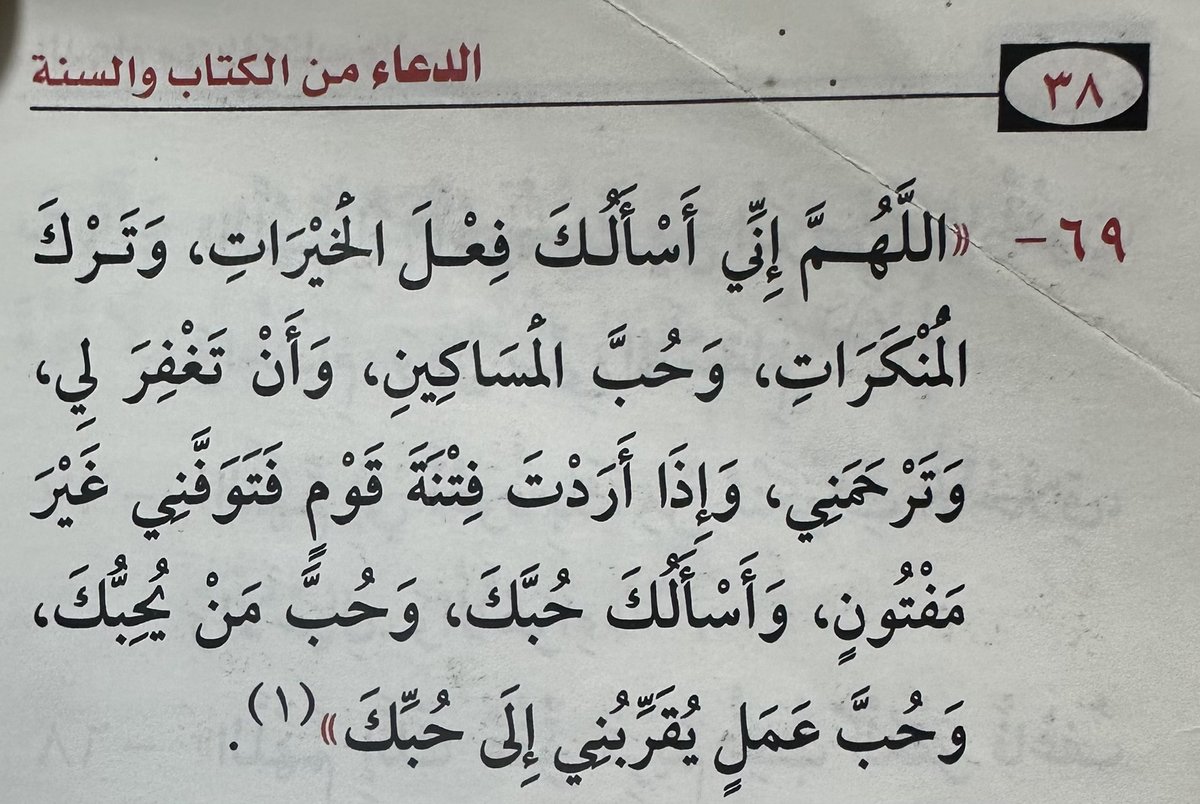 ٣٨ الدعاء من الكتاب والسنة
٦٩- «اللَّهُمَّ إِنِّي أَسْأَلُكَ فِعْلَ الْخَيْرَاتِ، وَتَرْكَ
الْمُنْكَرَاتِ، وَحُبَّ الْمَسَاكِينِ، وَأَنْ تَغْفِرَ لِي،
وَتَرْحَمَنِي، وَإِذَا أَرَدْتَ فِتْنَةَ قَوْمٍ فَتَوَفَّنِي غَيْرَ
مَفْتُونٍ، وَأَسْأَلُكَ حُبَّكَ، وَحُبَّ مَنْ يُحِبُّكَ،
وَحُبَّ عَمَلٍ يُقَرِّبُنِي إِلَى حُبِّكَ»(١).